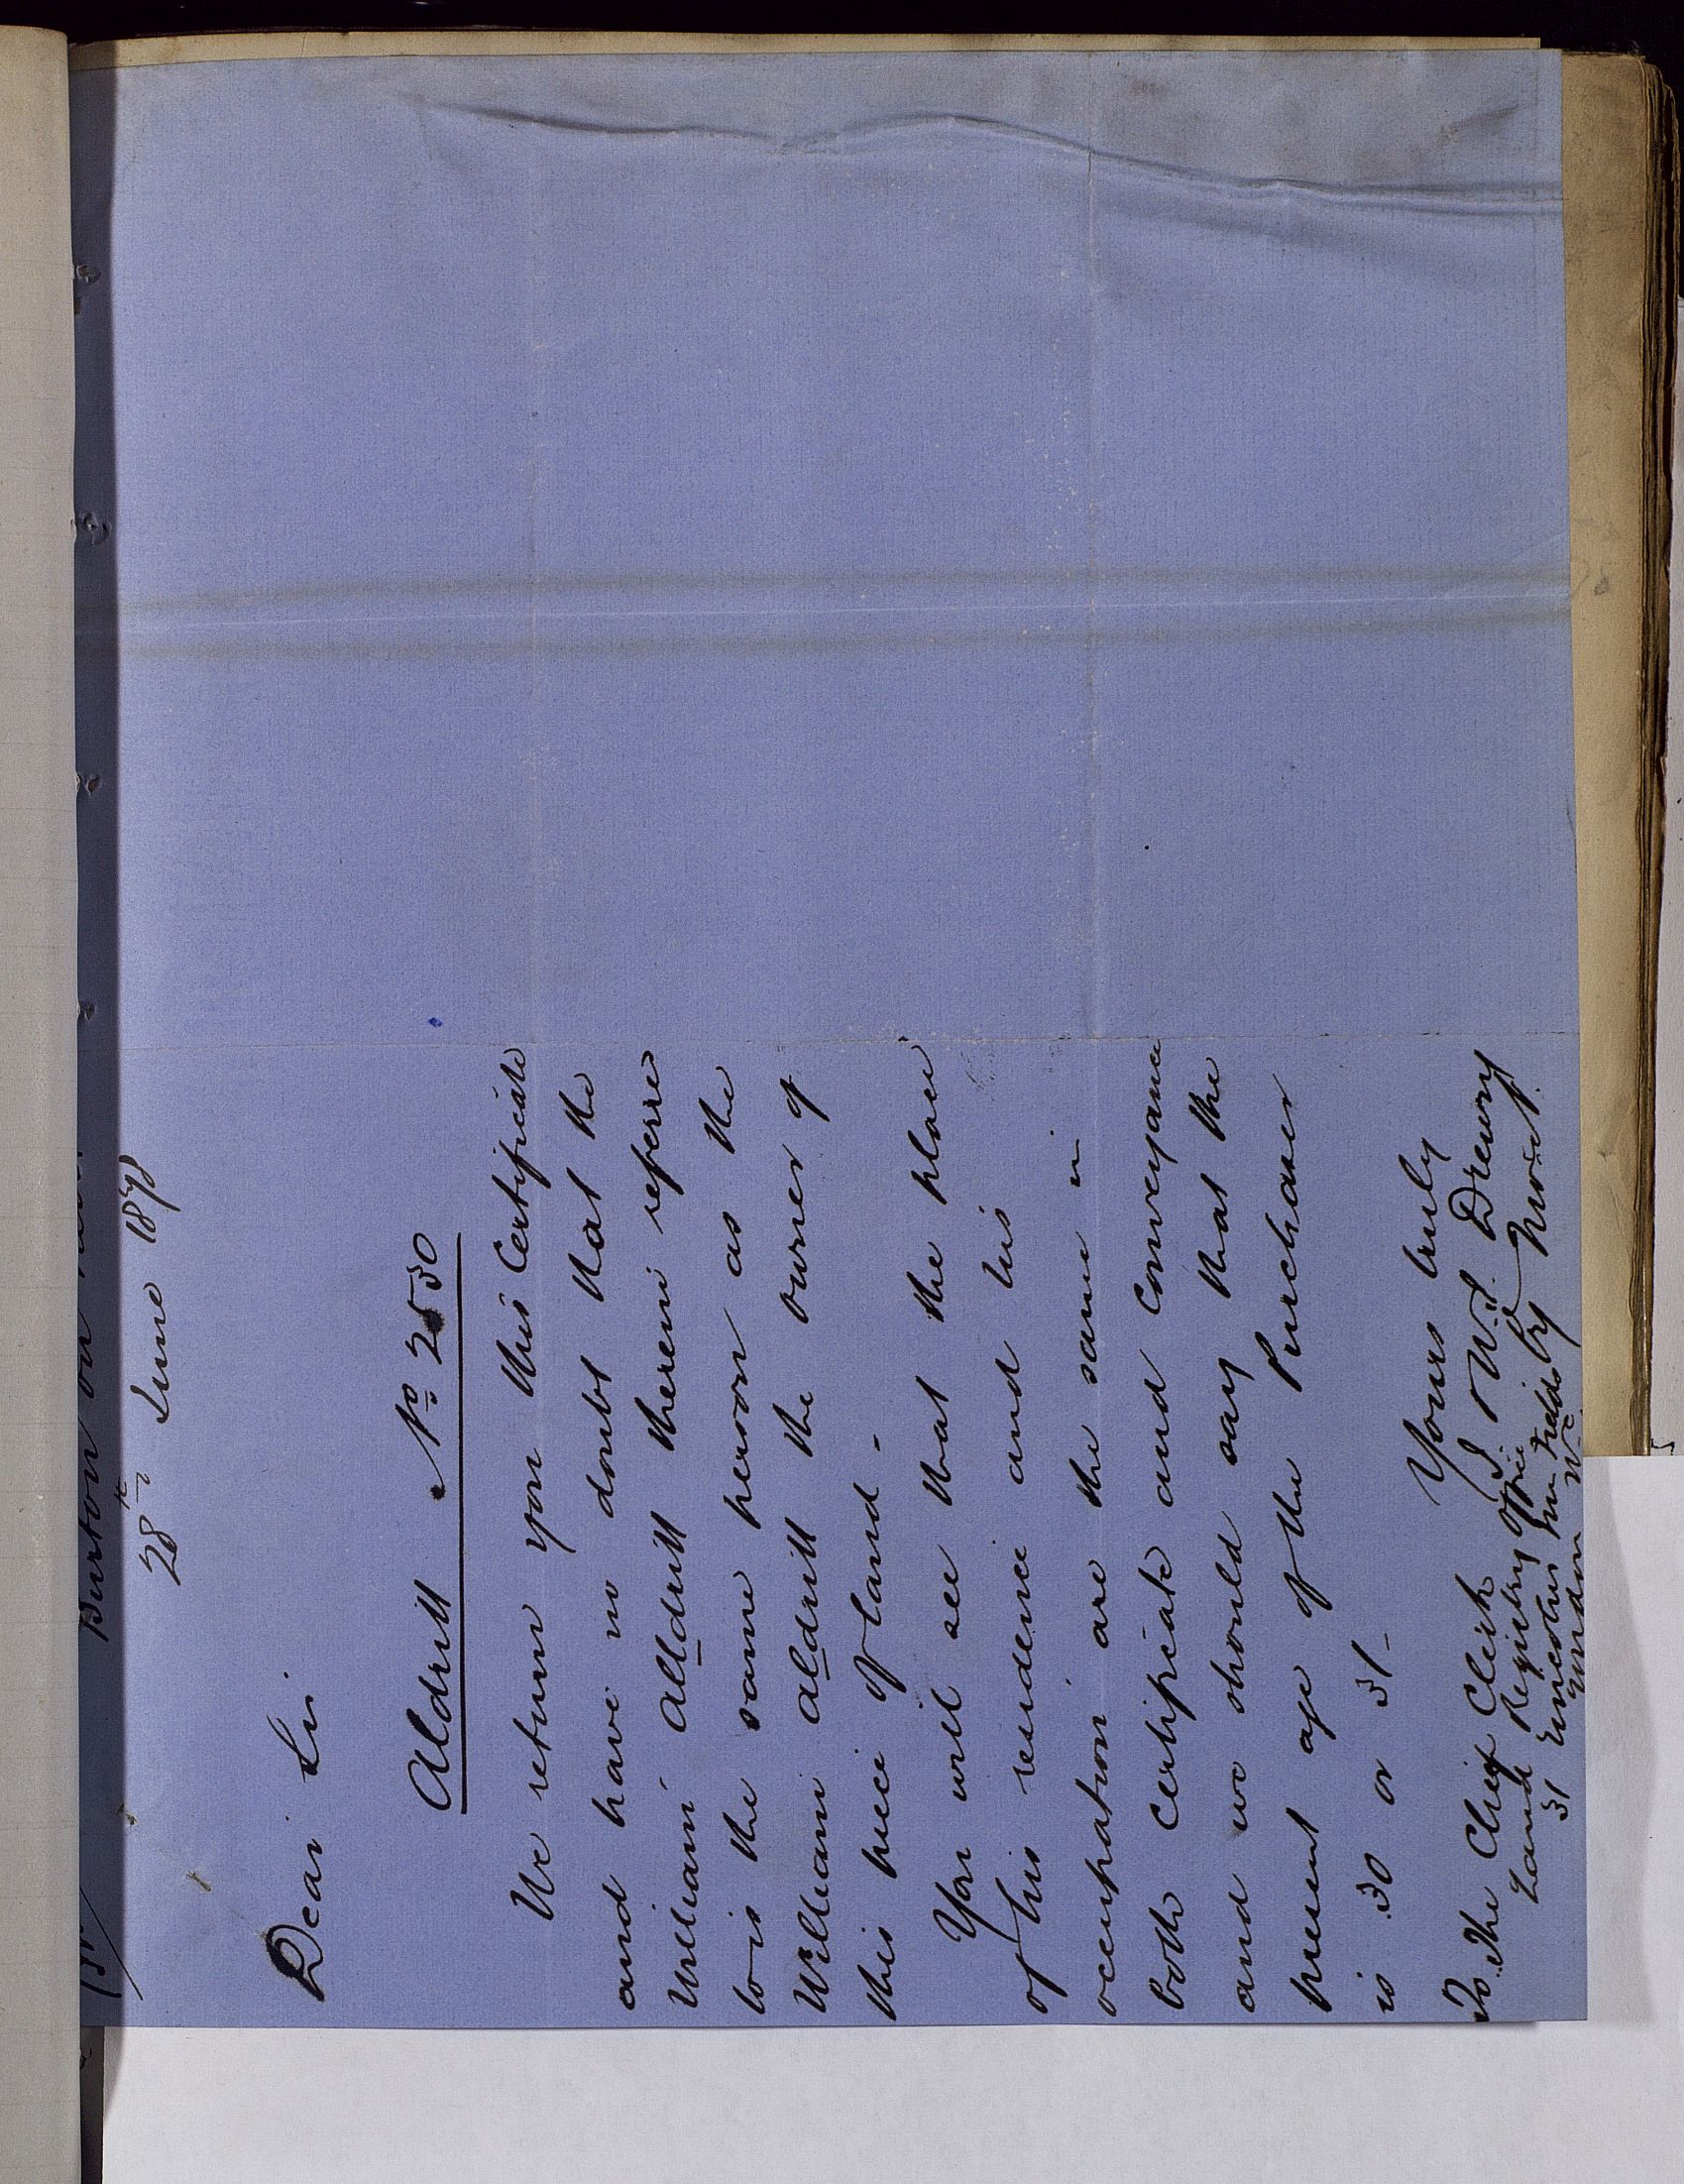 Burton on
28th June 187
Dear Sir
Aldritt No. 2530
We return you this Certificate
and have no doubt that the
William Alldritt therein referre
to is the same person as the
William Aldritt the owner of
this piece of land -
You will see that the place
of his residence and his
occupation are the same in
both Certificate and Conveyance
and we should say that the
present age of the Purchaser
is 30 or 31 -
Yours truly
J & W J Drewry
by Newit
To The Chief Clerk
Land Registry Office
31 Lincolns Inn Fields
London WC